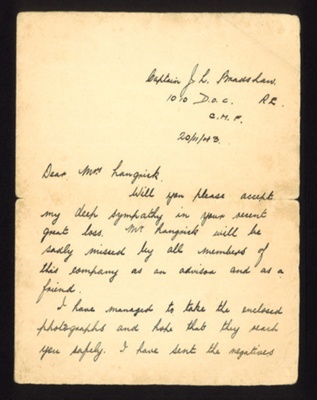 Captain J. L. Bradshaw.
1010 D.O.C. RE.
C.M.F.
20/11/43.
Dear Mrs Langrick.
Will you please accept
my deep sympathy in your recent
great loss. Mr Langrick will be
sadly missed by all members of
this company as an advisor and as a
friend.
I have managed to take the enclosed
photographs and hope that they reach
you safely. I have sent the negatives